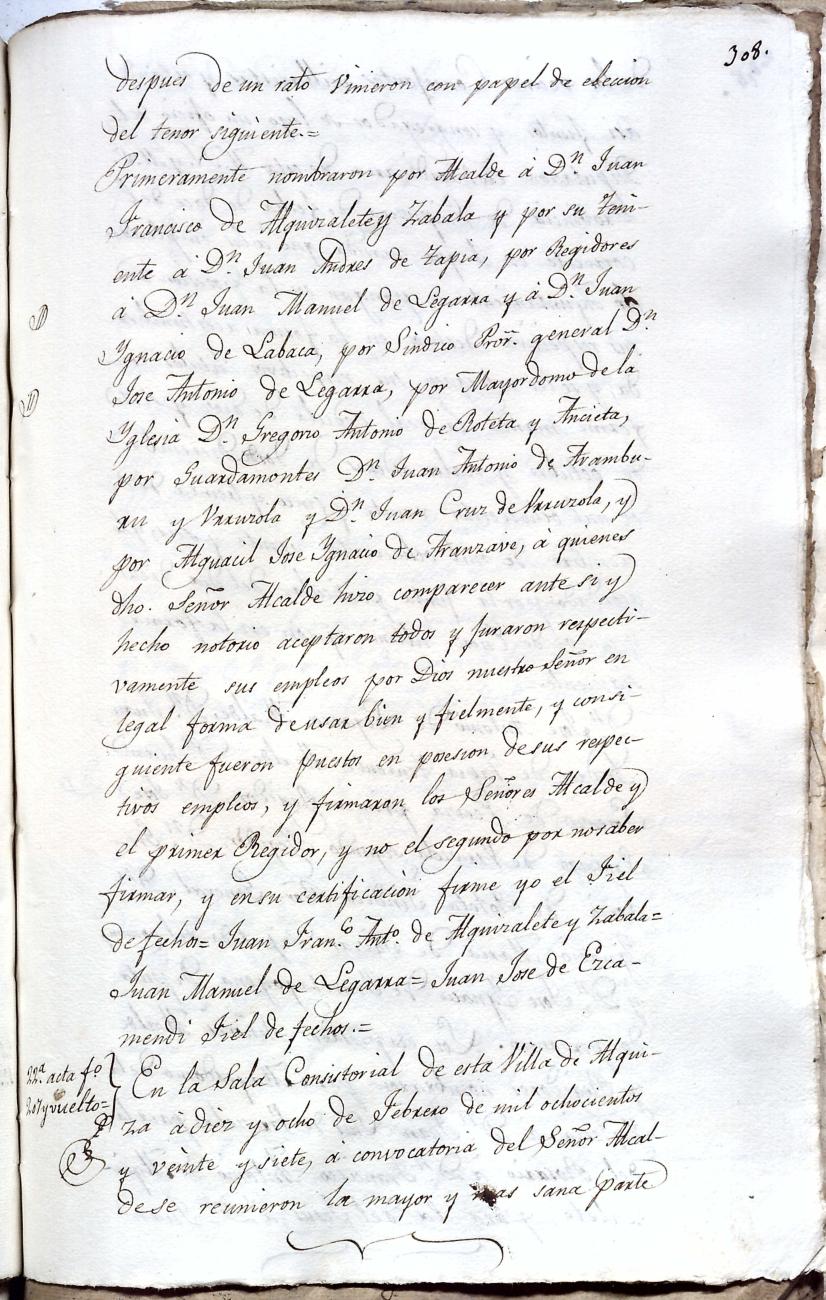 308.
despues de un rato vinieron con papel de eleccion
del tenor siguiente.=
Primeramente nombraron por Alcalde á Dn. Juan
Francisco de Alquizalete y Zabala y por su Teni-
ente á Dn. Juan Andres de Zapia, por Regidores
á Dn. Juan Manuel de Legarra y á Dn. Juan
Ygnacio de Labaca, por Sindico Pror. general Dn.
Jose Antonio de Legarra, por Mayordomo de la
Yglesia Dn. Gregorio Antonio de Roteta y Ancieta,
por Guardamontes Dn. Juan Antonio de Arambu-
ru y Urruzola y Dn. Juan Cruz de Urruzola, y
por Alguacil Jose Ygnacio de Aranzave, á quienes
dho. Señor Alcalde hizo comparecer ante si y
hecho notorio aceptaron todos y juraron respecti-
vamente sus empleos por Dios nuestro Señor en
legal forma de usar bien y fielmente, y consi-
guiente fueron puestos en posesion de sus respec-
tivos empleos, y firmaron los Señores Alcalde y
el primer Regidor, y no el segundo por no saber
firmar, y en su certificacion firme yo el Fiel
de fechos= Juan Franco. Anto. de Alquizalete y Zabala=
Juan Manuel de Legarra= Juan Jose de Ezca-
mendi Fiel de fechos.=
22a. acta fo
207 y vuelto=
En la Sala Consistorial de esta Villa de Alqui-
za á diez y ocho de Febrero de mil ochocientos
y veinte y siete, á convocatoria del Señor Alcal-
de se reunieron la mayor y mas sana parte